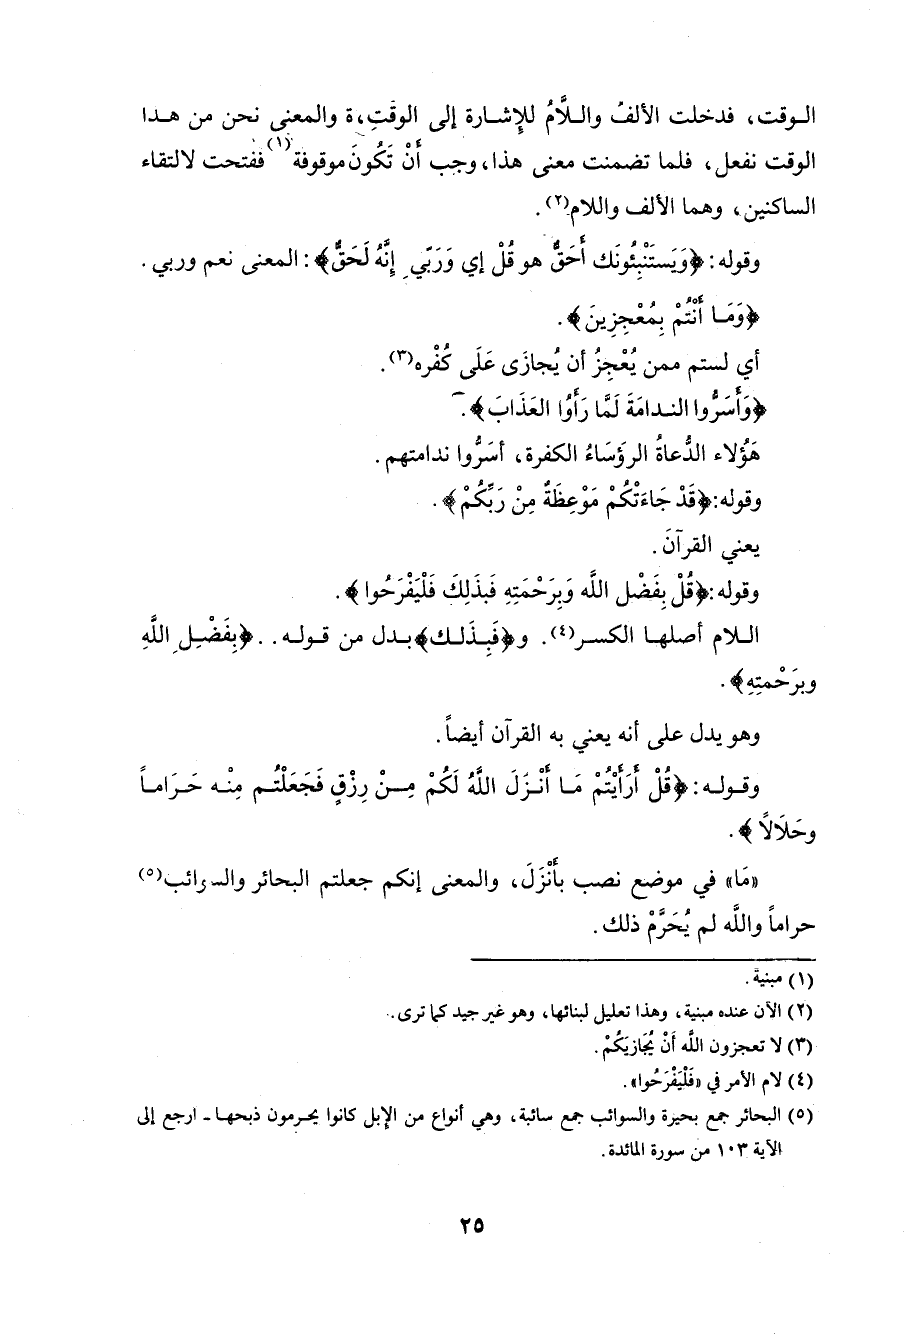 الـوقت، فدخلت الألفُ والـلَّامُ للإِشـارة إلى الوقتِ، والمعنى نحن من هـذا
الوقت نفعل، فلما تضمنت معنى هذا، وجب أَنْ تَكُونَ موقوفة(١) ففتحت لالتقاء
الساكنين، وهما الألف واللام(٢).
وقوله: ﴿وَيَستَنْبِئُونَك أَحَقٌّ هو قُلْ إي وَرَبّي إِنَّهُ لَحَقٌّ﴾: المعنى نعم وربي.
﴿وَمَـا أَنْتُمْ بِمُعْجِزِينَ﴾.
أي لستم ممن يُعْجِزُ أن يُجازَى عَلَى كُفْره(٣).
﴿وَأَسَرُّوا النـدامَةَ لَمَّا رَأَوُا العَذَابَ﴾.
هَؤُلاء الدُّعاةُ الرؤَسَاءُ الكفرة، أسَرُّوا ندامتهم.
وقوله:﴿قَدْ جَاءَتْكُمْ مَوْعِظَةٌ مِنْ رَبِّكُمْ﴾.
يعني القرآنَ.
وقوله:﴿قُلْ بِفَضْل اللَّه وَبِرَحْمَتِهِ فَبذَلِكَ فَلْيَفْرَحُوا﴾.
الـلام أصلهـا الكسـر(٤). و﴿فَبِـذَلـك﴾بـدل من قـولـه..﴿بِفَضْـلِ اللَّهِ
وبرَحْمتِهِ﴾.
وهو يدل على أنه يعني به القرآن أيضاً.
وقـولـه:﴿قُلْ أَرَأَيْتُمْ مَـا أَنْـزَلَ اللَّهُ لَكُمْ مِـنْ رِزْقٍ فَجَعَلْتُـم مِنْـه حَـرَامـاً
وحَلَالاً﴾.
«مَا» في موضع نصب بأَنْزَلَ، والمعنى إنكم جعلتم البحائر والسوائب(٥)
حراماً واللَّه لم يُحَرَّمْ ذلك.
(١) مبنية.
(٢) الآن عنده مبنية، وهذا تعليل لبنائها، وهو غير جيد كما ترى.
(٣) لا تعجزون اللَّه أَنْ يُجَازِيَكُمْ.
(٤) لام الأمر في «فَلْيَفْرَحُوا».
(٥) البحائر جمع بحيرة والسوائب جمع سائبة، وهي أنواع من الإبل كانوا يحـرمون ذبحهـا ـ ارجع إلى
الآية ١٠٣ من سورة المائدة.
٢٥